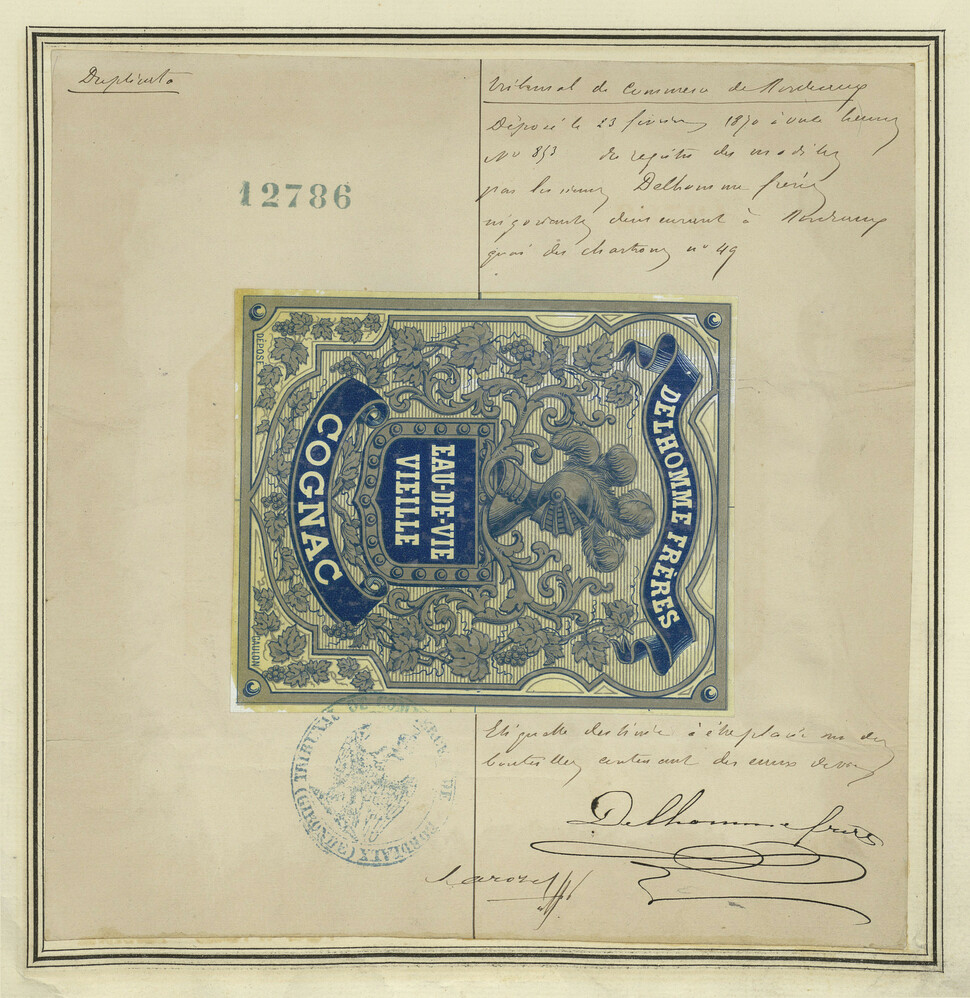 Duplicata
12786
Tribunal de Commerce de Bordeaux
Déposé le 23 février 1870 à onze heures
No 853 du registre des modèles
par les sieurs Delhomme frères
négociants demeurant à Bordeaux
quai des chartrons no 49
DELHOMME FRÈRES
EAU-DE-VIE
VIEILLE
COGNAC
DEPOSÉ
Etiquette destinée à être placée sur des
bouteilles contenant des eaux de vie
TRIBUNAL DE COMMERCE DE BORDEAUX (GIRONDE)
Delhomme frères